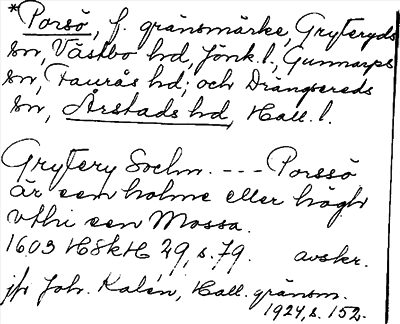 *Porsö, f. gränsmärke, Gryteryds
sn, Västbo hd, Jönk. l., Gunnarps
sn, Faurås hd; och Drängsereds
sn, Årstads hd, Hall. l.
Grytery Sochn. ---- Porssö
är een holme eller högh
vthi een Mossa.
1603 HSkH 29, s. 79. avskr.
jfr Joh. Kalén, Hall. gränsm.
1924, s. 152.